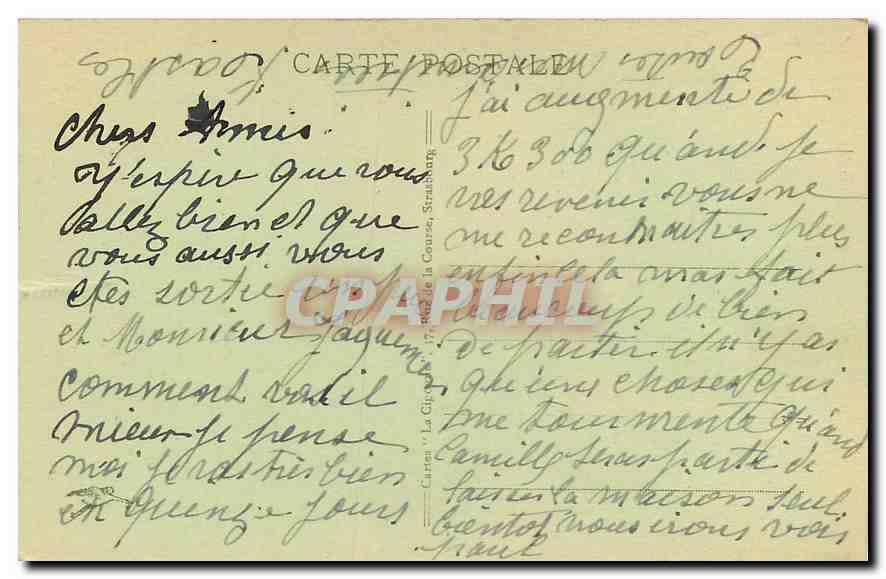 CARTE POSTALE
chers Amis.
J'espère que vous
allez bien et que
vous aussi vous
êtes sortie un peu
et Monsieur Jaquemin
comment va il
mieux je pense
moi je vas très bien
en quenze jours
Cartes "La Cigogne", 17, Rue de la Course, Strasbourg
j'ai augmenté de
3 K 300 quand je
vais revenir vous ne
me reconnaitres plus
enfin cela mas fait
beaucoup de bien
de partir il n'y as
qu'une choses qui
me tourmente quand
Camille seras parti de
laisser la maison seul
bientot nous irons voir
paul
CPAPHIL